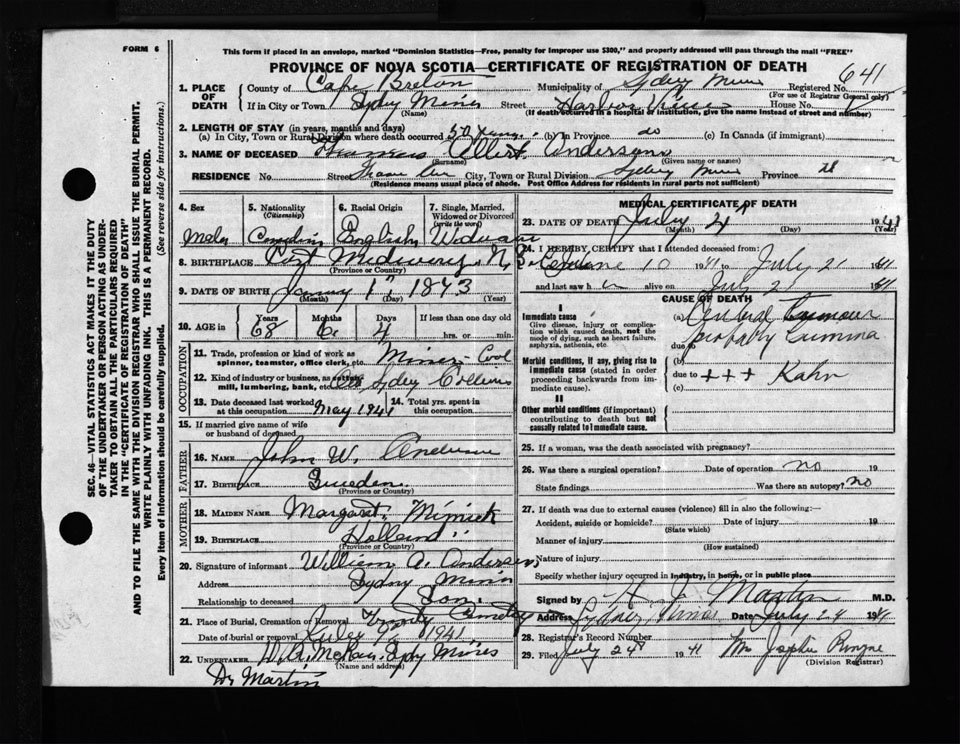 FORM 6
This form if placed in an envelope, marked "Dominion Statistics—Free, penalty for improper use $300," and properly addressed will pass through the mail "FREE"
PROVINCE OF NOVA SCOTIA—CERTIFICATE OF REGISTRATION OF DEATH
641
1. PLACE OF DEATH
County of Cape Breton Municipality of Sydney Mines Registered No.
(For use of Registrar General only)
If in City or Town Sydney Mines Street Harbor View House No.
(Name) (If death occurred in a hospital or institution, give the name instead of street and number)
2. LENGTH OF STAY (in years, months and days)
(a) In City, Town or Rural Division where death occurred 50 years (b) In Province do (c) In Canada (if immigrant)
3. NAME OF DECEASED Albert Anderson
(Surname) (Given name or names)
RESIDENCE No. Street City, Town or Rural Division Sydney Mines Province
(Residence means usual place of abode. Post Office Address for residents in rural parts not sufficient)
SEC. 46—VITAL STATISTICS ACT MAKES IT THE DUTY
OF THE UNDERTAKER OR PERSON ACTING AS UNDER-
TAKER TO OBTAIN ALL THE PARTICULARS REQUIRED
IN THE "CERTIFICATE OF REGISTRATION OF DEATH"
AND TO FILE THE SAME WITH THE DIVISION REGISTRAR WHO SHALL ISSUE THE BURIAL PERMIT.
WRITE PLAINLY WITH UNFADING INK. THIS IS A PERMANENT RECORD.
Every item of information should be carefully supplied. (See reverse side for instructions.)
4. Sex 5. Nationality (Citizenship) 6. Racial Origin 7. Single, Married, Widowed or Divorced (write the word)
Male Canadian English Widower
8. BIRTHPLACE Port N.S.
(Province or Country)
9. DATE OF BIRTH 1st 1873
(Month) (Day) (Year)
10. AGE in Years Months Days If less than one day
68 6 4 hrs. or min.
OCCUPATION
11. Trade, profession or kind of work as spinner, teamster, office clerk, etc. Miner-Coal
12. Kind of industry or business, as cotton mill, lumbering, bank, etc. Sydney
13. Date deceased last worked at this occupation May 1941 14. Total yrs. spent in this occupation
15. If married give name of wife or husband of deceased
FATHER
16. NAME John W. Anderson
17. BIRTHPLACE Sweden
(Province or Country)
MOTHER
18. MAIDEN NAME Margaret
19. BIRTHPLACE Holland
(Province or Country)
20. Signature of informant William A. Anderson
Address Sydney Mines
Relationship to deceased Son
21. Place of Burial, Cremation or Removal Trinity Cemetery
Date of burial or removal 1941
22. UNDERTAKER Sydney Mines
(Name and address)
Dr Martin
MEDICAL CERTIFICATE OF DEATH
23. DATE OF DEATH July 1941
(Month) (Day) (Year)
24. I HEREBY CERTIFY that I attended deceased from:
June 10 1941 to July 21 1941
and last saw h alive on July 21 1941
CAUSE OF DEATH
Immediate cause
Give disease, injury or complication which caused death, not the mode of dying, such as heart failure, asphyxia, asthenia, etc.
(a)
due to probably
Morbid conditions, if any, giving rise to immediate cause (stated in order proceeding backwards from immediate cause).
(b)
due to +++ Kahn
(c)
II
Other morbid conditions (if important) contributing to death but not causally related to immediate cause.
25. If a woman, was the death associated with pregnancy?
26. Was there a surgical operation? Date of operation no 19
State findings Was there an autopsy? no
27. If death was due to external causes (violence) fill in also the following:—
Accident, suicide or homicide? Date of injury 19
(State which)
Manner of injury
(How sustained)
Nature of injury
Specify whether injury occurred in industry, in home, or in public place
Signed by M.D.
Address Sydney Mines Date July 24 1941
28. Registrar's Record Number
29. Filed July 24 1941
(Division Registrar)